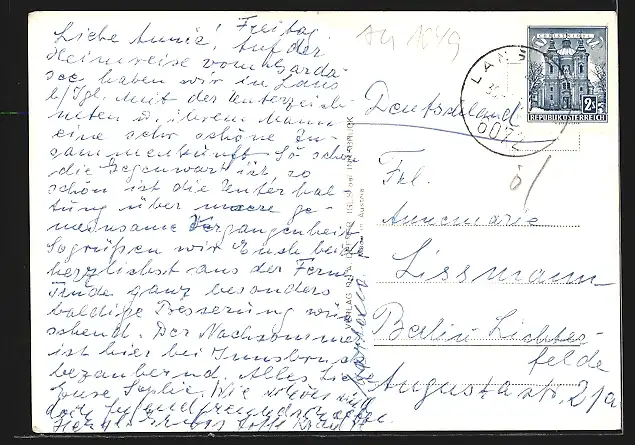 Freitag.
Liebe Annie! Auf der
Heimreise vom Garda-
see haben wir in Lans
b/Igl. mit der Unterzeich-
neten u. ihrem Mann
eine sehr schöne Zu-
sammenkunft. So schön
die Gegenwart ist, so
schön ist die Unterhal-
tung über unsere ge-
meinsame Vergangenheit
So grüßen wir Euch beide
herzlichst aus der Ferne
Ende ganz besonders
baldige Besserung wün-
schend. Der Nachsommer
ist hier bei Innsbruck
bezaubernd. Alles
Eure Sophie. Wie
doch Jugendfreundschaften
Deutschland
Frl.
Annemarie
Lissmann
Berlin-Lichter-
felde
Augustastr. 21a
CHRISTKINDL
2S
REPUBLIK ÖSTERREICH
LANS
6072